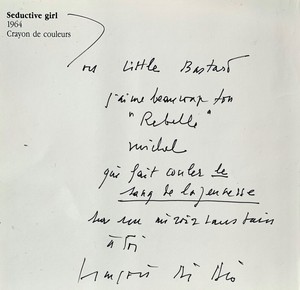 Seductive girl
1964
Crayon de couleurs
ou Little Bastard
j'aime beaucoup ton
"Rebelle"
michel
que fait couler le
sang de la jeunesse
sur un miroir sans tain
à toi
François Di Dio